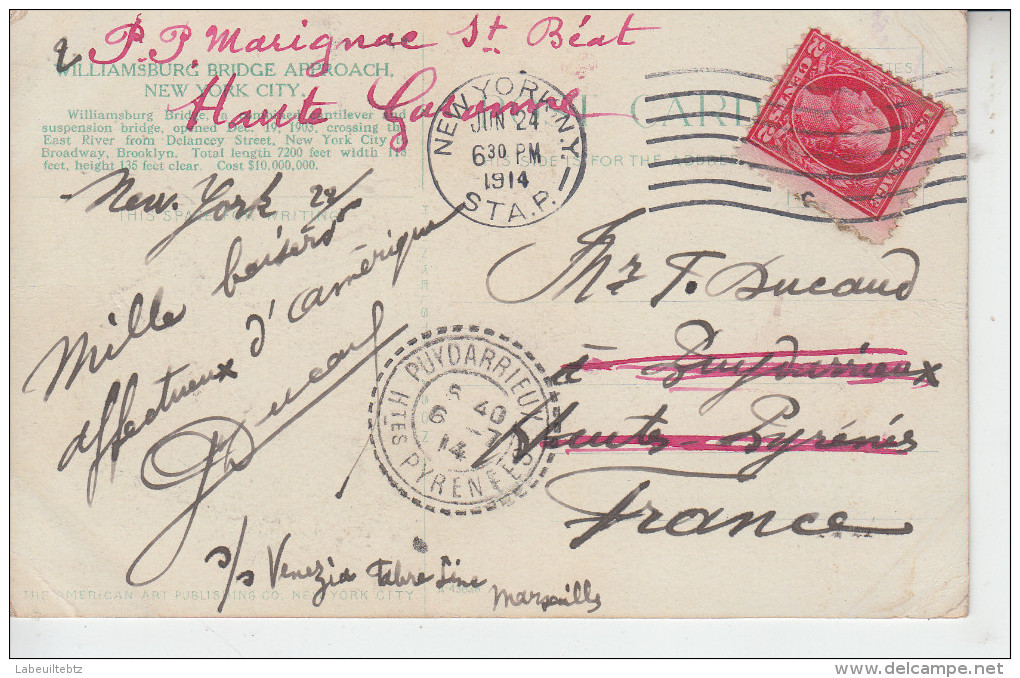 P.P. Marignac St. Béat
Haute Garonne
WILLIAMSBURG BRIDGE APPROACH,
NEW YORK CITY.
Williamsburg Bridge, combined cantilever and
suspension bridge, opened Dec. 19, 1903, crossing the
East River from Delancey Street, New York City to
Broadway, Brooklyn. Total length 7200 feet width 118
feet, height 135 feet clear. Cost $10,000,000.
CARD
THIS SIDE IS FOR THE ADDRESS
THIS SPACE FOR WRITING
NEW YORK, N.Y.
JUN 24
6 30 PM
1914
STA. P.
2 CENTS 2
U.S. POSTAGE
New-York 24
Mille baisers
affectueux d'amérique
Ducaud
Mr F. Ducaud
à Puydarrieux
Hautes-Pyrénées
France
PUYDARRIEUX
6 40
6 -7
14
HTES PYRENEES
s/s Venezia Fabre Line
Marseille
THE AMERICAN ART PUBLISHING CO. NEW YORK CITY.
Labeuiltebtz
delcampe.net